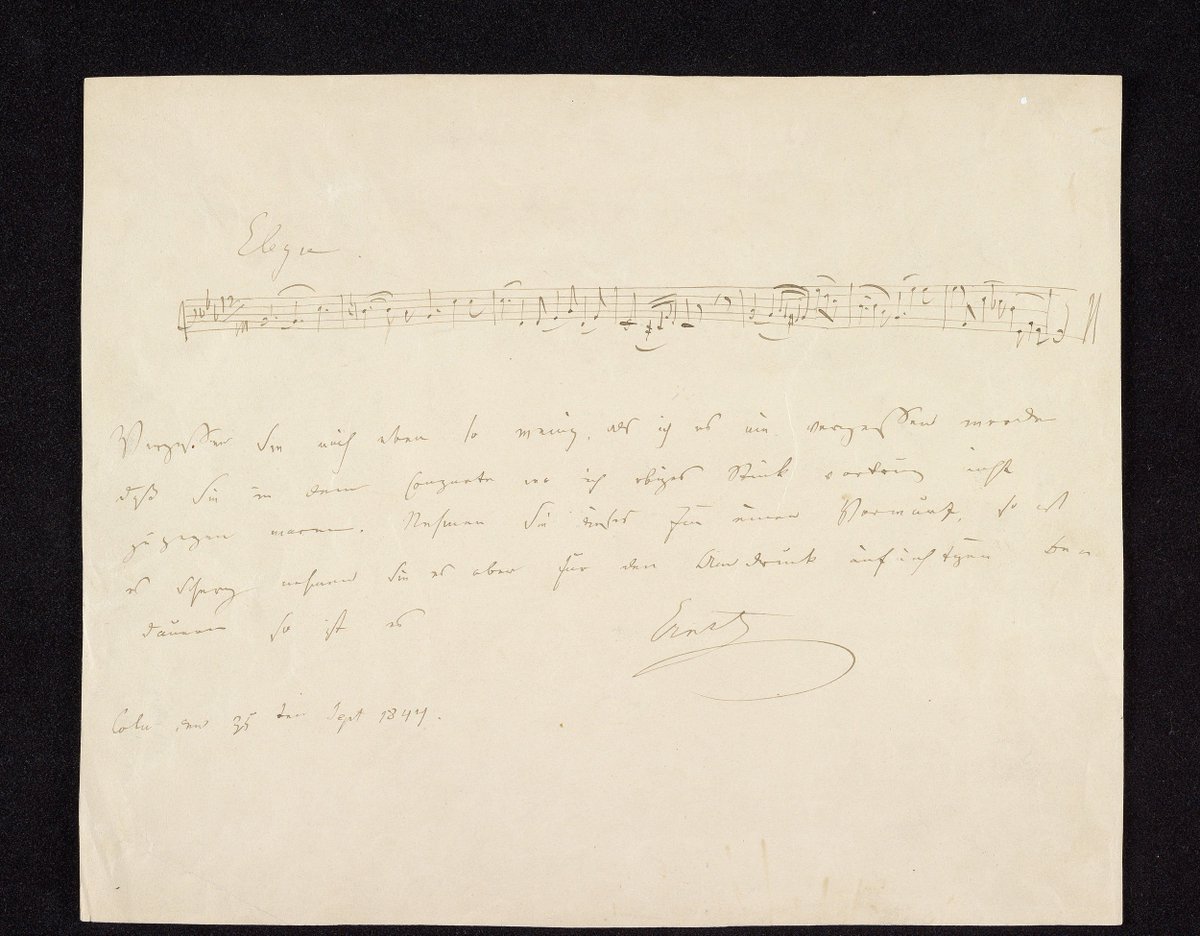 Elegie
Vergessen Sie auch eben so wenig, als ich es nie vergessen werde
daß Sie in dem Conzerte wo ich obiges Stück vortrug nicht
zugegen waren. Nehmen Sie dieses für einen Vorwurf, so ist
es Scherz nehmen Sie es aber für den Ausdruck aufrichtigen Be
dauerns so ist es
Ernst
Cöln den 25 ten Sept 1844.